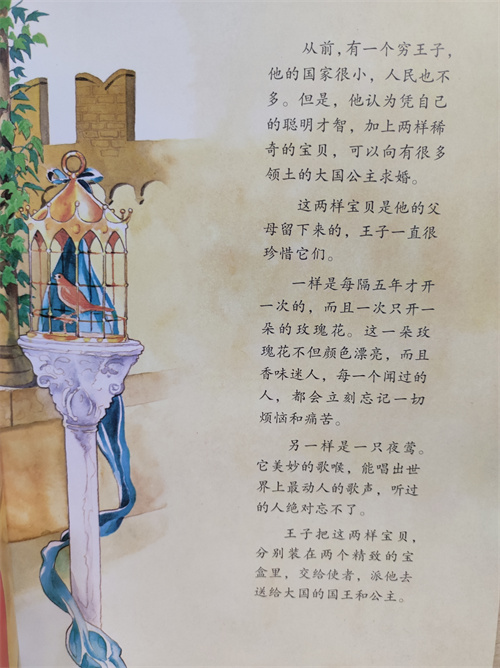 从前，有一个穷王子，
他的国家很小，人民也不
多。但是，他认为凭自己
的聪明才智，加上两样稀
奇的宝贝，可以向有很多
领土的大国公主求婚。
这两样宝贝是他的父
母留下来的，王子一直很
珍惜它们。
一样是每隔五年才开
一次的，而且一次只开一
朵的玫瑰花。这一朵玫
瑰花不但颜色漂亮，而且
香味迷人，每一个闻过的
人，都会立刻忘记一切
烦恼和痛苦。
另一样是一只夜莺。
它美妙的歌喉，能唱出世
界上最动人的歌声，听过
的人绝对忘不了。
王子把这两样宝贝，
分别装在两个精致的宝
盒里，交给使者，派他去
送给大国的国王和公主。